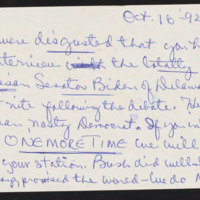 Oct. 16 '92
were disgusted that you h
terview with the totally
isan Senator Biden of Delawa
nite following the debate. He
an nasty Democrat. If you in
ONE MORE TIME we will
your station. Bush did well
appraised the world—we do N